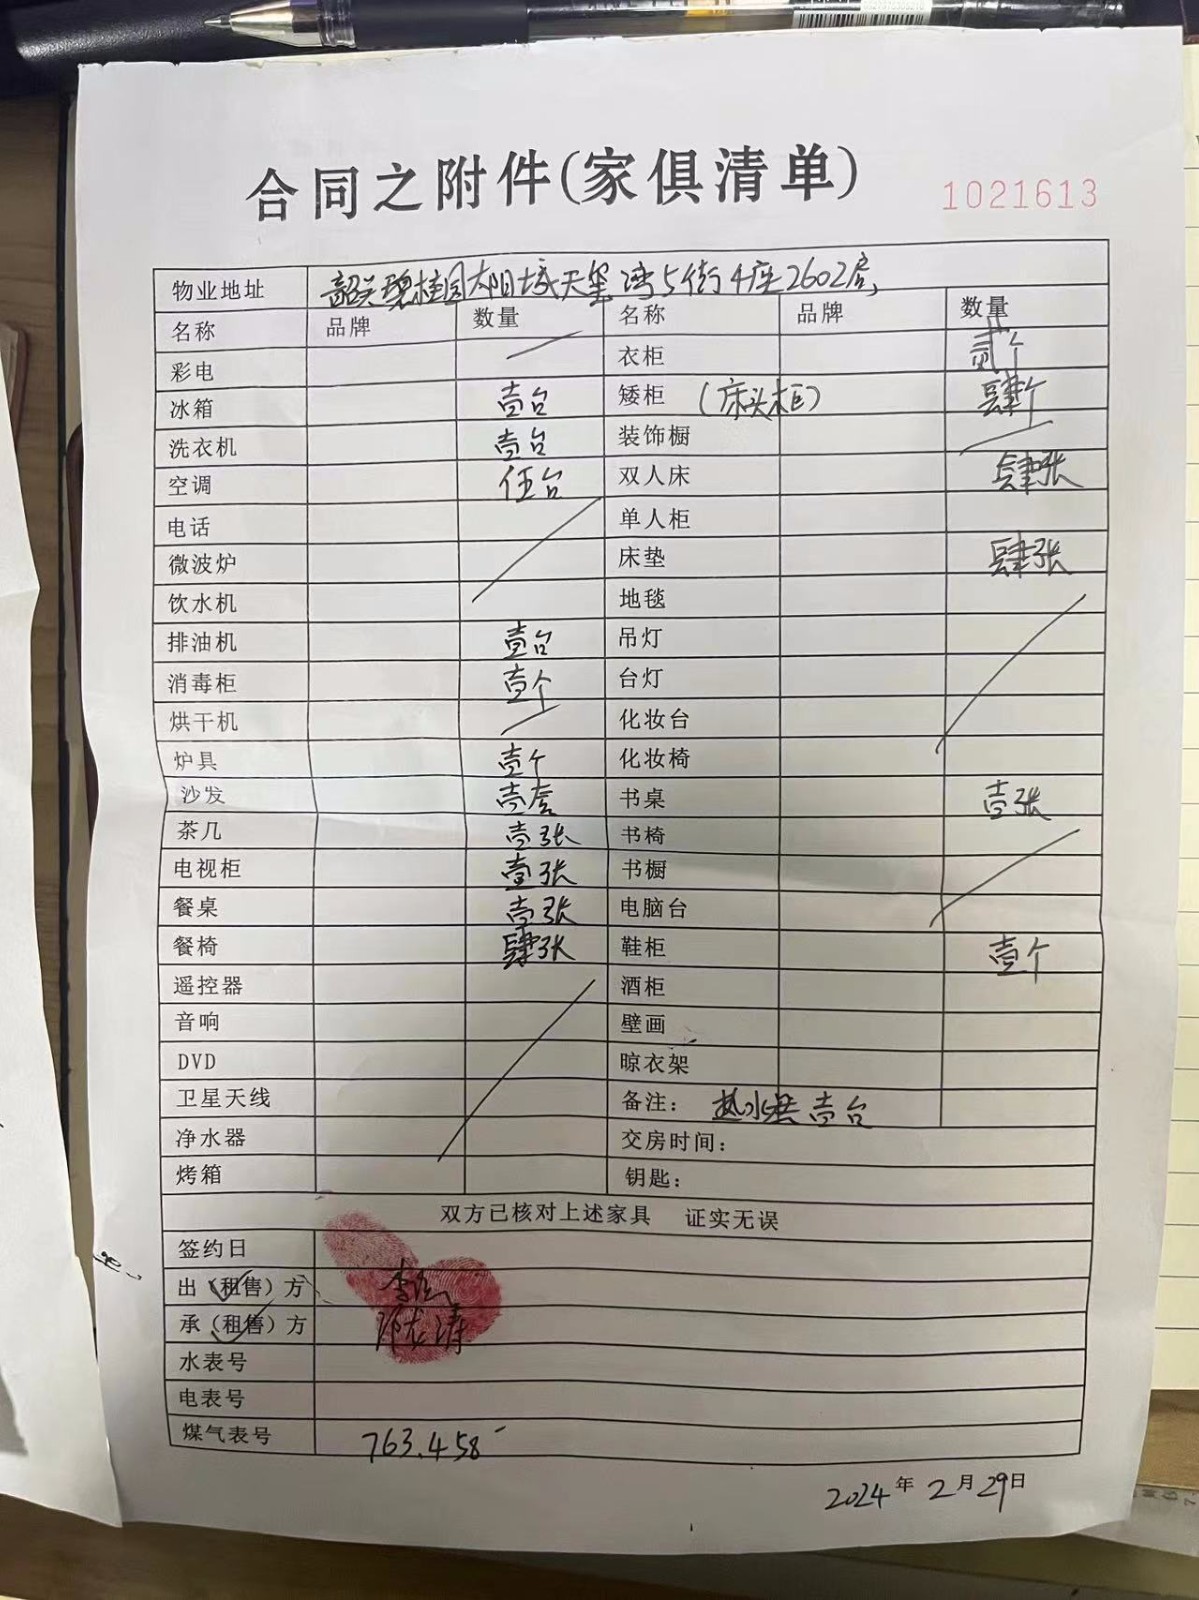 合同之附件(家俱清单)
1021613
物业地址 韶关碧桂园太阳城天玺湾5街4座2602房
名称 品牌 数量 名称 品牌 数量
彩电 衣柜 贰个
冰箱 壹台 矮柜 (床头柜) 肆个
洗衣机 壹台 装饰橱
空调 伍台 双人床 肆张
电话 单人柜
微波炉 床垫 肆张
饮水机 地毯
排油机 壹台 吊灯
消毒柜 壹个 台灯
烘干机 化妆台
炉具 壹个 化妆椅
沙发 壹套 书桌 壹张
茶几 壹张 书椅
电视柜 壹张 书橱
餐桌 壹张 电脑台
餐椅 肆张 鞋柜 壹个
遥控器 酒柜
音响 壁画
DVD 晾衣架
卫星天线 备注: 热水器壹台
净水器 交房时间:
烤箱 钥匙:
双方已核对上述家具 证实无误
签约日
出(租售)方 李
承(租售)方 邓龙涛
水表号
电表号
煤气表号 763.458
2024年2月29日